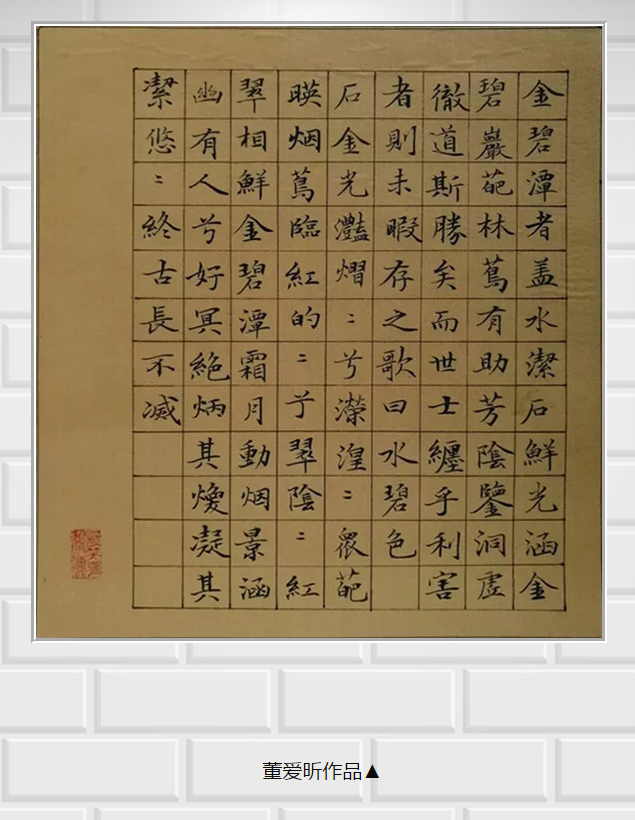 金碧潭者盖水潔石鮮光涵金
碧巖葩林蔦有助芳陰鑒洞虛
徹道斯勝矣而世士纏乎利害
者則未暇存之歌曰水碧色
石金光灩熠〻兮濴湟〻衆葩
暎烟蔦臨紅的〻亍翠陰〻紅
翠相鮮金碧潭霜月動烟景涵
幽有人兮好冥絶炳其煥凝其
潔悠〻終古長不滅
董爱昕作品▲